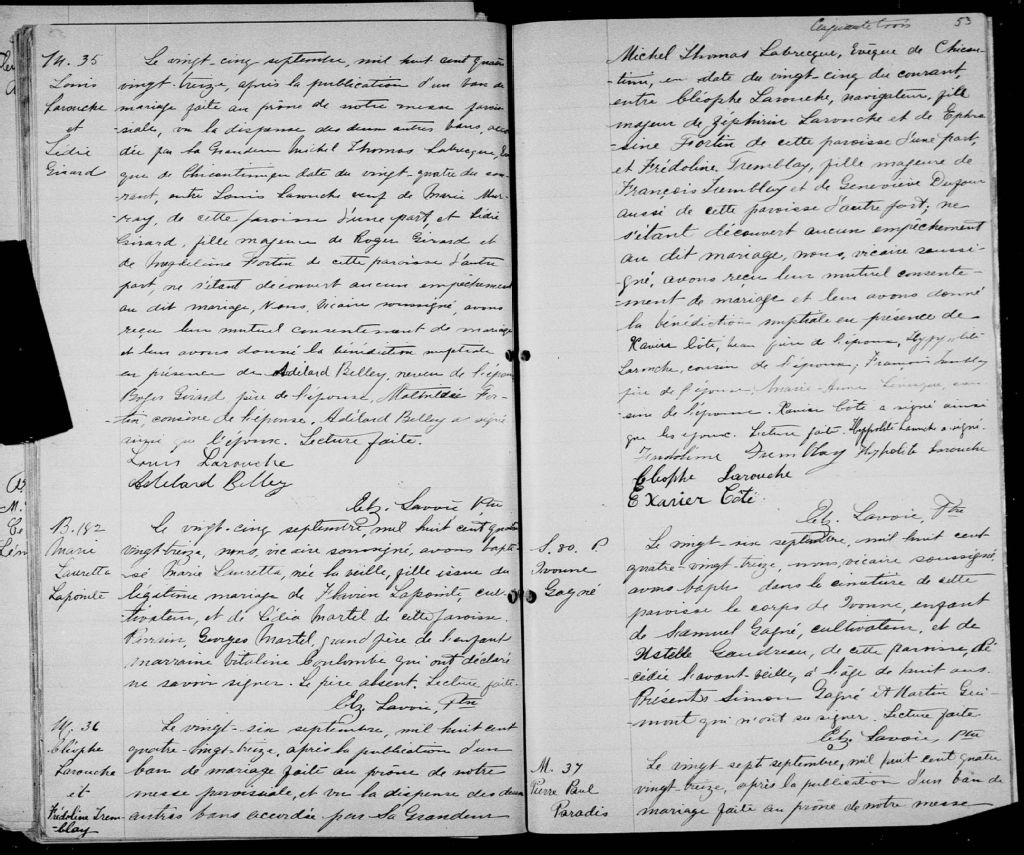 M. 35
Louis
Larouche
et
Lédie
Girard
Le vingt-cinq septembre, mil huit cent quatre
vingt-treize, après la publication d'un ban de
mariage faite au prône de notre messe parois-
siale, vu la dispense des deux autres bans, accor
dée par Sa Grandeur Michel Thomas Labrecque, Évê
que de Chicoutimi, en date du vingt-quatre du cou-
rant, entre Louis Larouche veuf de Marie Mur-
ray, de cette paroisse d'une part, et Lédie
Girard, fille majeure de Roger Girard et
de Magdeleine Fortin de cette paroisse d'autre
part, ne s'étant découvert aucun empêchement
au dit mariage, Nous, Vicaire soussigné, avons
reçu leur mutuel consentement de mariage
et leur avons donné la bénédiction nuptiale
en présence de Adélard Belley, neveu de l'époux
Roger Girard père de l'épouse, Mathilde For-
tin, cousine de l'épouse. Adélard Belley a signé
ainsi que l'époux. Lecture faite.
Louis Larouche
Adélard Belley
Elz. Lavoie Ptre
B. 182
Marie
Lauretta
Lapointe
Le vingt-cinq septembre, mil huit cent quatre
vingt-treize, nous, vicaire soussigné, avons bapti-
sé Marie Lauretta, née la veille, fille issue du
légitime mariage de Flavien Lapointe cul-
tivateur, et de Lédia Martel de cette paroisse.
Parrain, Georges Martel, grand père de l'enfant
marraine Vitaline Coulombe qui ont déclaré
ne savoir signer. Le père absent. Lecture faite.
Elz Lavoie, Ptre
M. 36
Cléophe
Larouche
et
Frédoline Trem-
-blay
Le vingt-six septembre, mil huit cent
quatre-vingt-treize, après la publication d'un
ban de mariage faite au prône de notre
messe paroissiale, et vu la dispense des deux
autres bans accordée par Sa Grandeur
Cinquante trois
53
Michel Thomas Labrecque, Évêque de Chicou-
timi, en date du vingt-cinq du courant,
entre Cléophe Larouche, navigateur, fils
majeur de Zéphirin Larouche et de Ephro
sine Fortin de cette paroisse d'une part,
et Frédoline Tremblay, fille majeure de
François Tremblay et de Geneviève Dufour
aussi de cette paroisse d'autre part; ne
s'étant découvert aucun empêchement
au dit mariage, nous, vicaire soussi-
-gné, avons reçu leur mutuel consente-
-ment de mariage et leur avons donné
la bénédiction nuptiale en présence de
Xavier Côté, beau frère de l'époux, Hyppolite
Larouche, cousin de l'épouse, François Tremblay
père de l'épouse, Marie-Anne Lévesque, cou-
sine de l'épouse. Xavier Côté a signé ainsi
que les époux. Lecture faite. Hyppolite Larouche a signé.
Frédoline Tremblay Hyppolite Larouche
Cléophe Larouche
E Xavier Côté
Elz. Lavoie, Ptre
S. 80. P.
Yvonne
Gagné
Le vingt-six septembre, mil huit cent
quatre-vingt-treize, nous vicaire soussigné
avons dans le cimetière de cette
paroisse le corps de Yvonne, enfant
de Samuel Gagné, cultivateur, et de
Estelle Gaudreau, de cette paroisse, dé-
cédée l'avant-veille, à l'âge de huit ans.
Présents Simon Gagné et Martin Gui-
mont qui n'ont su signer. Lecture faite
Elz Lavoie, Ptre
M. 37
Pierre Paul
Paradis
Le vingt sept septembre, mil huit cent quatre
vingt-treize, après la publication d'un ban de
mariage faite au prône de notre messe